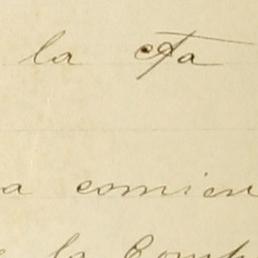 la cta
a comien
la Comp